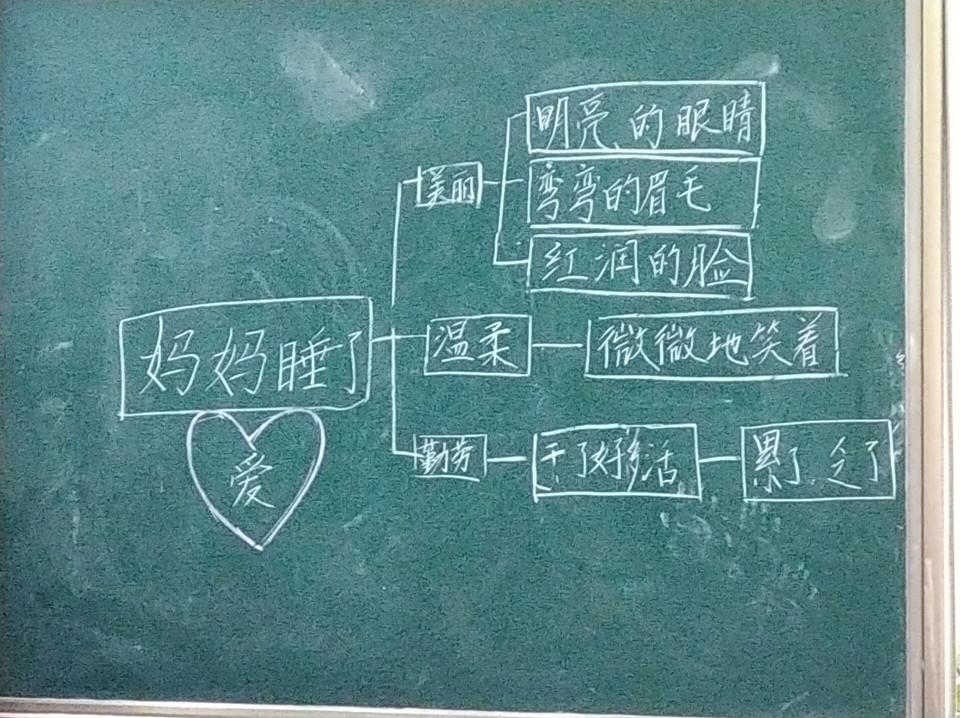 明亮的眼睛
美丽
弯弯的眉毛
红润的脸
妈妈睡了
温柔
微微地笑着
爱
勤劳
干了好多活
累了乏了